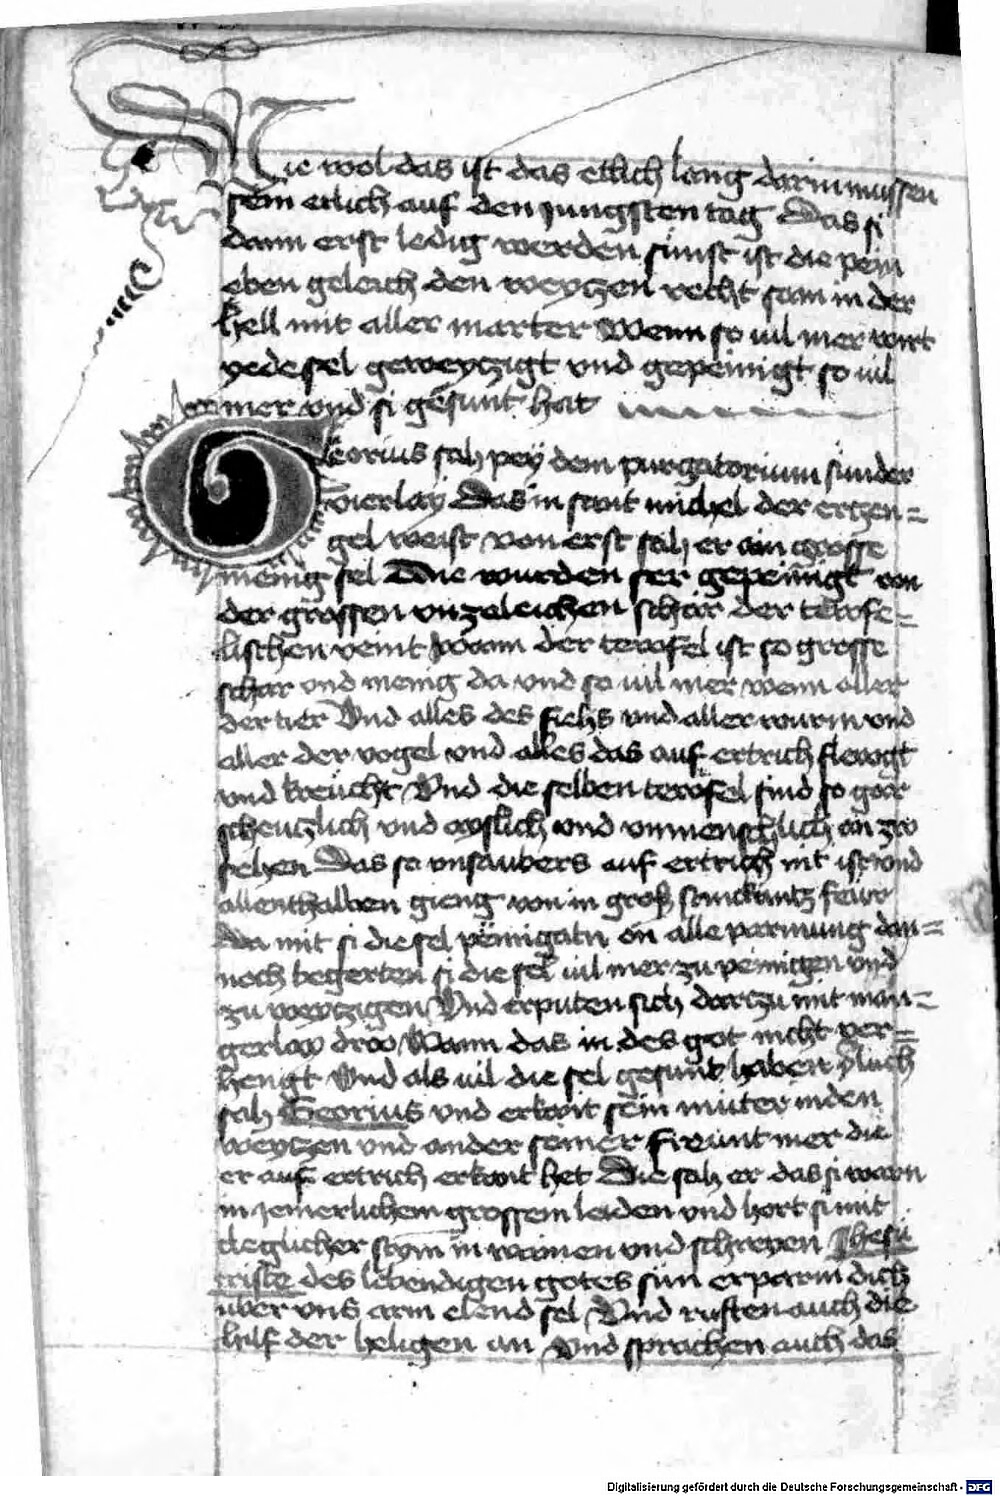 Wie wol das ist das etlich lang darin mussen
sein etlich auf den jungsten tag Das si
dann erst ledig werden sünst ist die pein
eben geleich den weytzen recht sam in der
hell mit aller marter Wenn so uil mer wirt
yede sel geweytzigt vnd gepeinigt so uil
mer vnd si gesunt hat
Georius sah pey dem purgatorium sunder
vierlay Das in sant michel der ertzen=
gel weist von erst sah er ain grosse
menig sel Die wurden ser gepeinigt von
der grossen vnzeleichen schar der tewfe=
lischen veint wann der tewfel ist so grosse
schar vnd menig da vnd so uil mer wenn aller
der tier Vnd alles des fichs vnd aller wurm vnd
aller der vogel vnd alles das auf ertrich flewgt
vnd kreücht Vnd die selben tewfel sind so gar
scheutzlich vnd ayslich vnd vnmenschlich an zw
sehen Das so vnsaubers auf ertrich nit ist vnd
allenthalben gieng von in groß stinckuntz fewr
Da mit si die sel peinigatn on alle parmung dan=
noch begerten si die sel uil mer zu peinigen vnd
zu weytzigen Vnd erputen sich dartzu mit man=
gerlay dro Wann das in des got nicht ver=
hengt Vnd als uil die sel gesunt haben Auch
sah Georius vnd erkant sein muter in den
weytzen vnd ander seiner freünt mer die
er auf ertrich erkant het Die sah er das si warn
in jemerlichem grossem leiden vnd hort si mit
cleglicher stym in wainen vnd schreyen Jhesu
criste des lebendigen gotes sün erparm dich
über vns arm elend sel Vnd rüften auch die
hilf der heligen an Vnd sprachen auch das
Digitalisierung gefördert durch die Deutsche Forschungsgemeinschaft - DFG